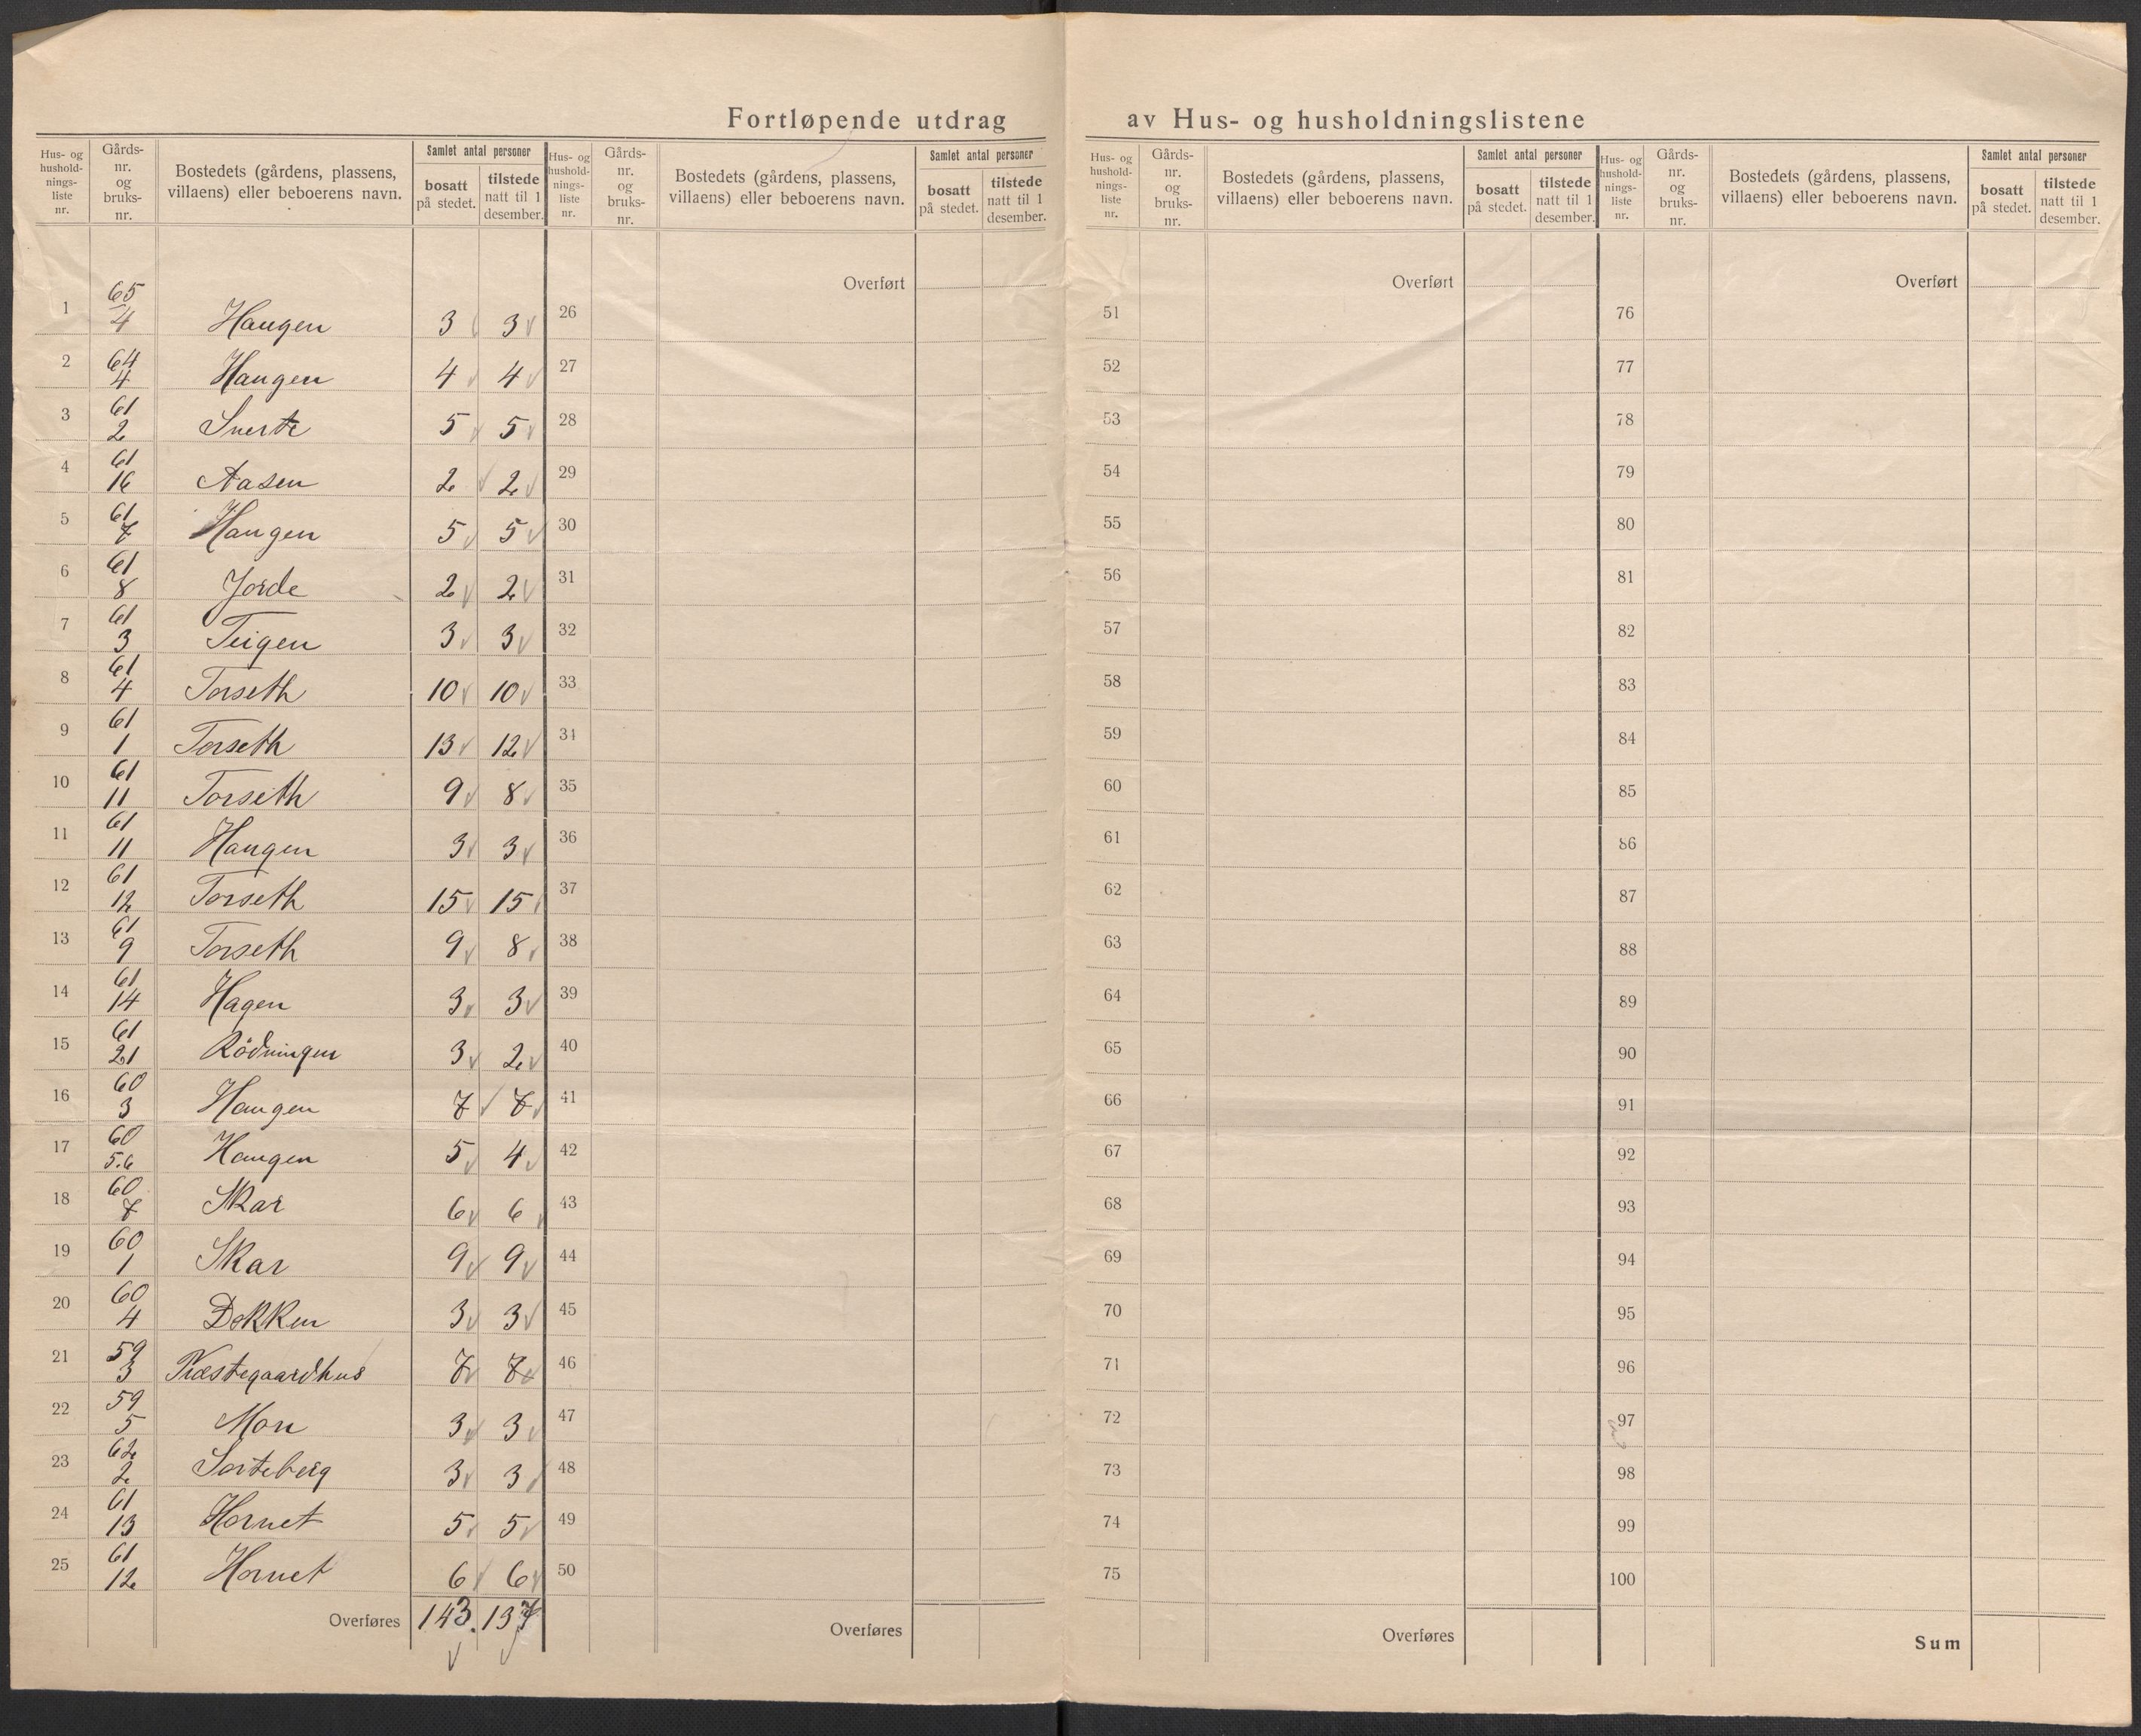 Fortløpende utdrag av Hus- og husholdningslistene
Hus- og hushold-nings-liste nr. Gårds-nr. og bruks-nr. Bostedets (gårdens, plassens, villaens) eller beboerens navn. Samlet antal personer bosatt på stedet. tilstede natt til 1 desember.
1 65/4 Haugen 3 3
2 64/4 Haugen 4 4
3 61/2 Sverte 5 5
4 61/16 Aasen 2 2
5 61/7 Haugen 5 5
6 61/8 Jorde 2 2
7 61/3 Teigen 3 3
8 61/4 Torseth 10 10
9 61/1 Torseth 13 12
10 61/11 Torseth 9 8
11 61/11 Haugen 3 3
12 61/12 Torseth 15 15
13 61/9 Torseth 9 8
14 61/14 Hagen 3 3
15 61/21 Rödningen 3 2
16 60/3 Haugen 7 7
17 60/5.6 Haugen 5 4
18 60/7 Skar 6 6
19 60/1 Skar 9 9
20 60/4 Dokken 3 3
21 59/3 Præstegaardhus 7 7
22 59/5 Mon 3 3
23 62/2 Sorteberg 3 3
24 61/13 Hornet 5 5
25 61/12 Hornet 6 6
Overføres 143. 137
Hus- og hushold-nings-liste nr. Gårds-nr. og bruks-nr. Bostedets (gårdens, plassens, villaens) eller beboerens navn. Samlet antal personer bosatt på stedet. tilstede natt til 1 desember.
Overført
26
27
28
29
30
31
32
33
34
35
36
37
38
39
40
41
42
43
44
45
46
47
48
49
50
Overføres
Hus- og hushold-nings-liste nr. Gårds-nr. og bruks-nr. Bostedets (gårdens, plassens, villaens) eller beboerens navn. Samlet antal personer bosatt på stedet. tilstede natt til 1 desember.
Overført
51
52
53
54
55
56
57
58
59
60
61
62
63
64
65
66
67
68
69
70
71
72
73
74
75
Overføres
Hus- og hushold-nings-liste nr. Gårds-nr. og bruks-nr. Bostedets (gårdens, plassens, villaens) eller beboerens navn. Samlet antal personer bosatt på stedet. tilstede natt til 1 desember.
Overført
76
77
78
79
80
81
82
83
84
85
86
87
88
89
90
91
92
93
94
95
96
97
98
99
100
Sum